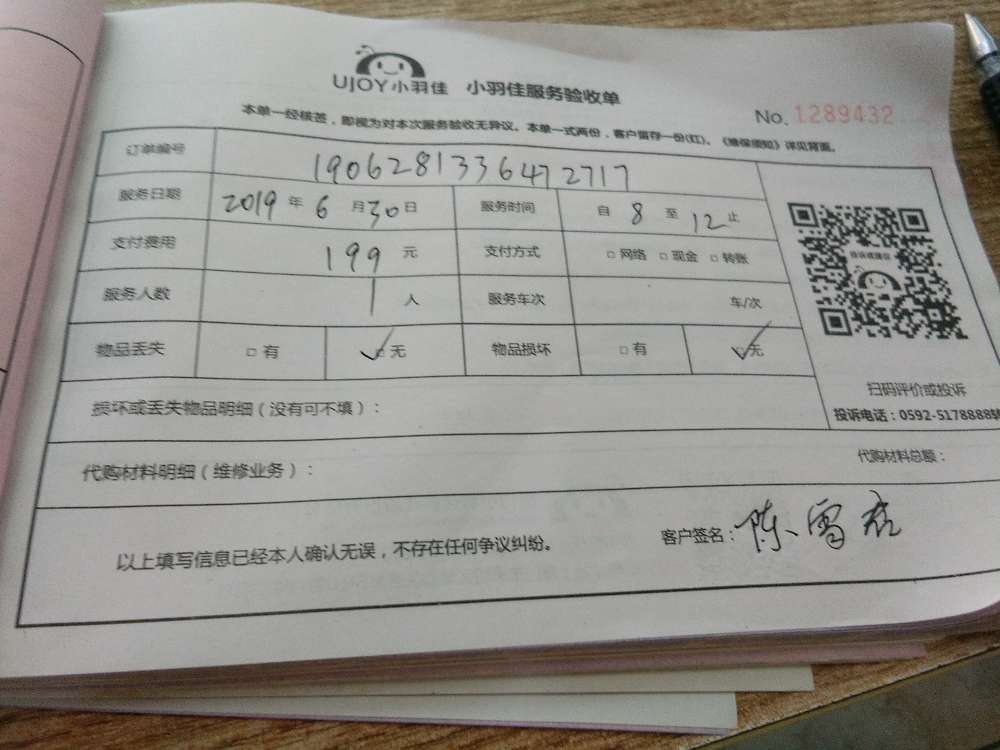 UJOY小羽佳 小羽佳服务验收单
No. 1289432
本单一经核签，即视为对本次服务验收无异议。本单一式两份，客户留存一份(红)。《维保须知》详见背面。
订单编号 1906281336472717
服务日期 2019 年 6 月 30 日 服务时间 自 8 至 12 止
支付费用 199 元 支付方式 □ 网络 □ 现金 □ 转账
服务人数 1 人 服务车次 车/次
物品丢失 □ 有 ✓□ 无 物品损坏 □ 有 ✓□ 无
扫码评价或投诉
投诉电话：0592-5178888转
损坏或丢失物品明细（没有可不填）：
代购材料明细（维修业务）： 代购材料总额：
以上填写信息已经本人确认无误，不存在任何争议纠纷。 客户签名：陈雪